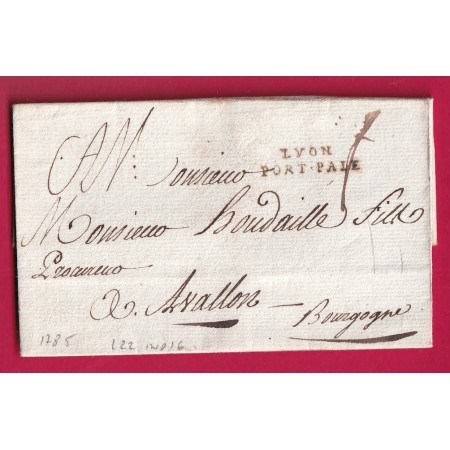 A Monsieur
LYON
PORT-PAIE
Monsieur Houdaille fils
Procureur
a. Avallon —
Bourgogne
1785 L22 IND16